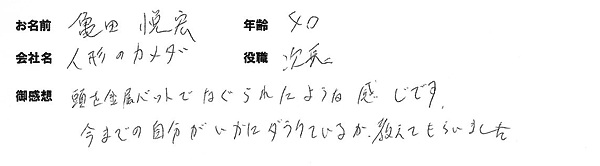 お名前 亀田 悦宏 年齢 40
会社名 人形のカメダ 役職 次長
御感想 頭を金属バットでなぐられたような感じです。
今までの自分がいかにダラクているか、教えてもらいました